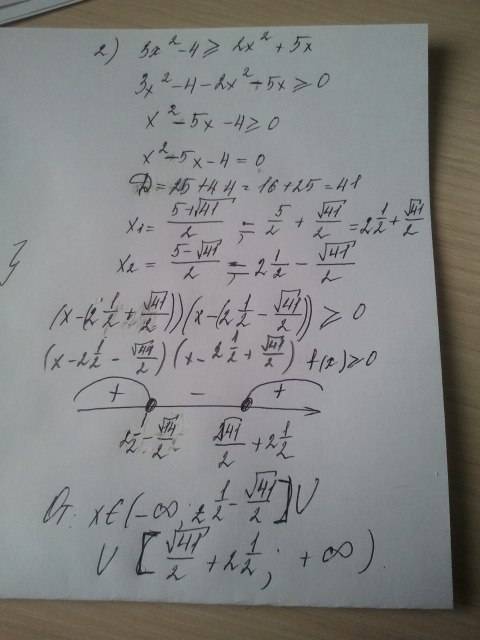 2) 3x² - 4 ≥ 2x² + 5x
3x² - 4 - 2x² - 5x ≥ 0
x² - 5x - 4 ≥ 0
x² - 5x - 4 = 0
D = 25 + 4·4 = 16 + 25 = 41
x₁ = (5+√41)/2 = 5/2 + √41/2 = 2 1/2 + √41/2
x₂ = (5-√41)/2 = 2 1/2 - √41/2
(x - (2 1/2 + √41/2))(x - (2 1/2 - √41/2)) ≥ 0
(x - 2 1/2 - √41/2)(x - 2 1/2 + √41/2) f(x) ≥ 0
+ - +
2 1/2 - √41/2 √41/2 + 2 1/2
От: x ∈ (-∞; 2 1/2 - √41/2] ∪
∪ [√41/2 + 2 1/2; +∞)